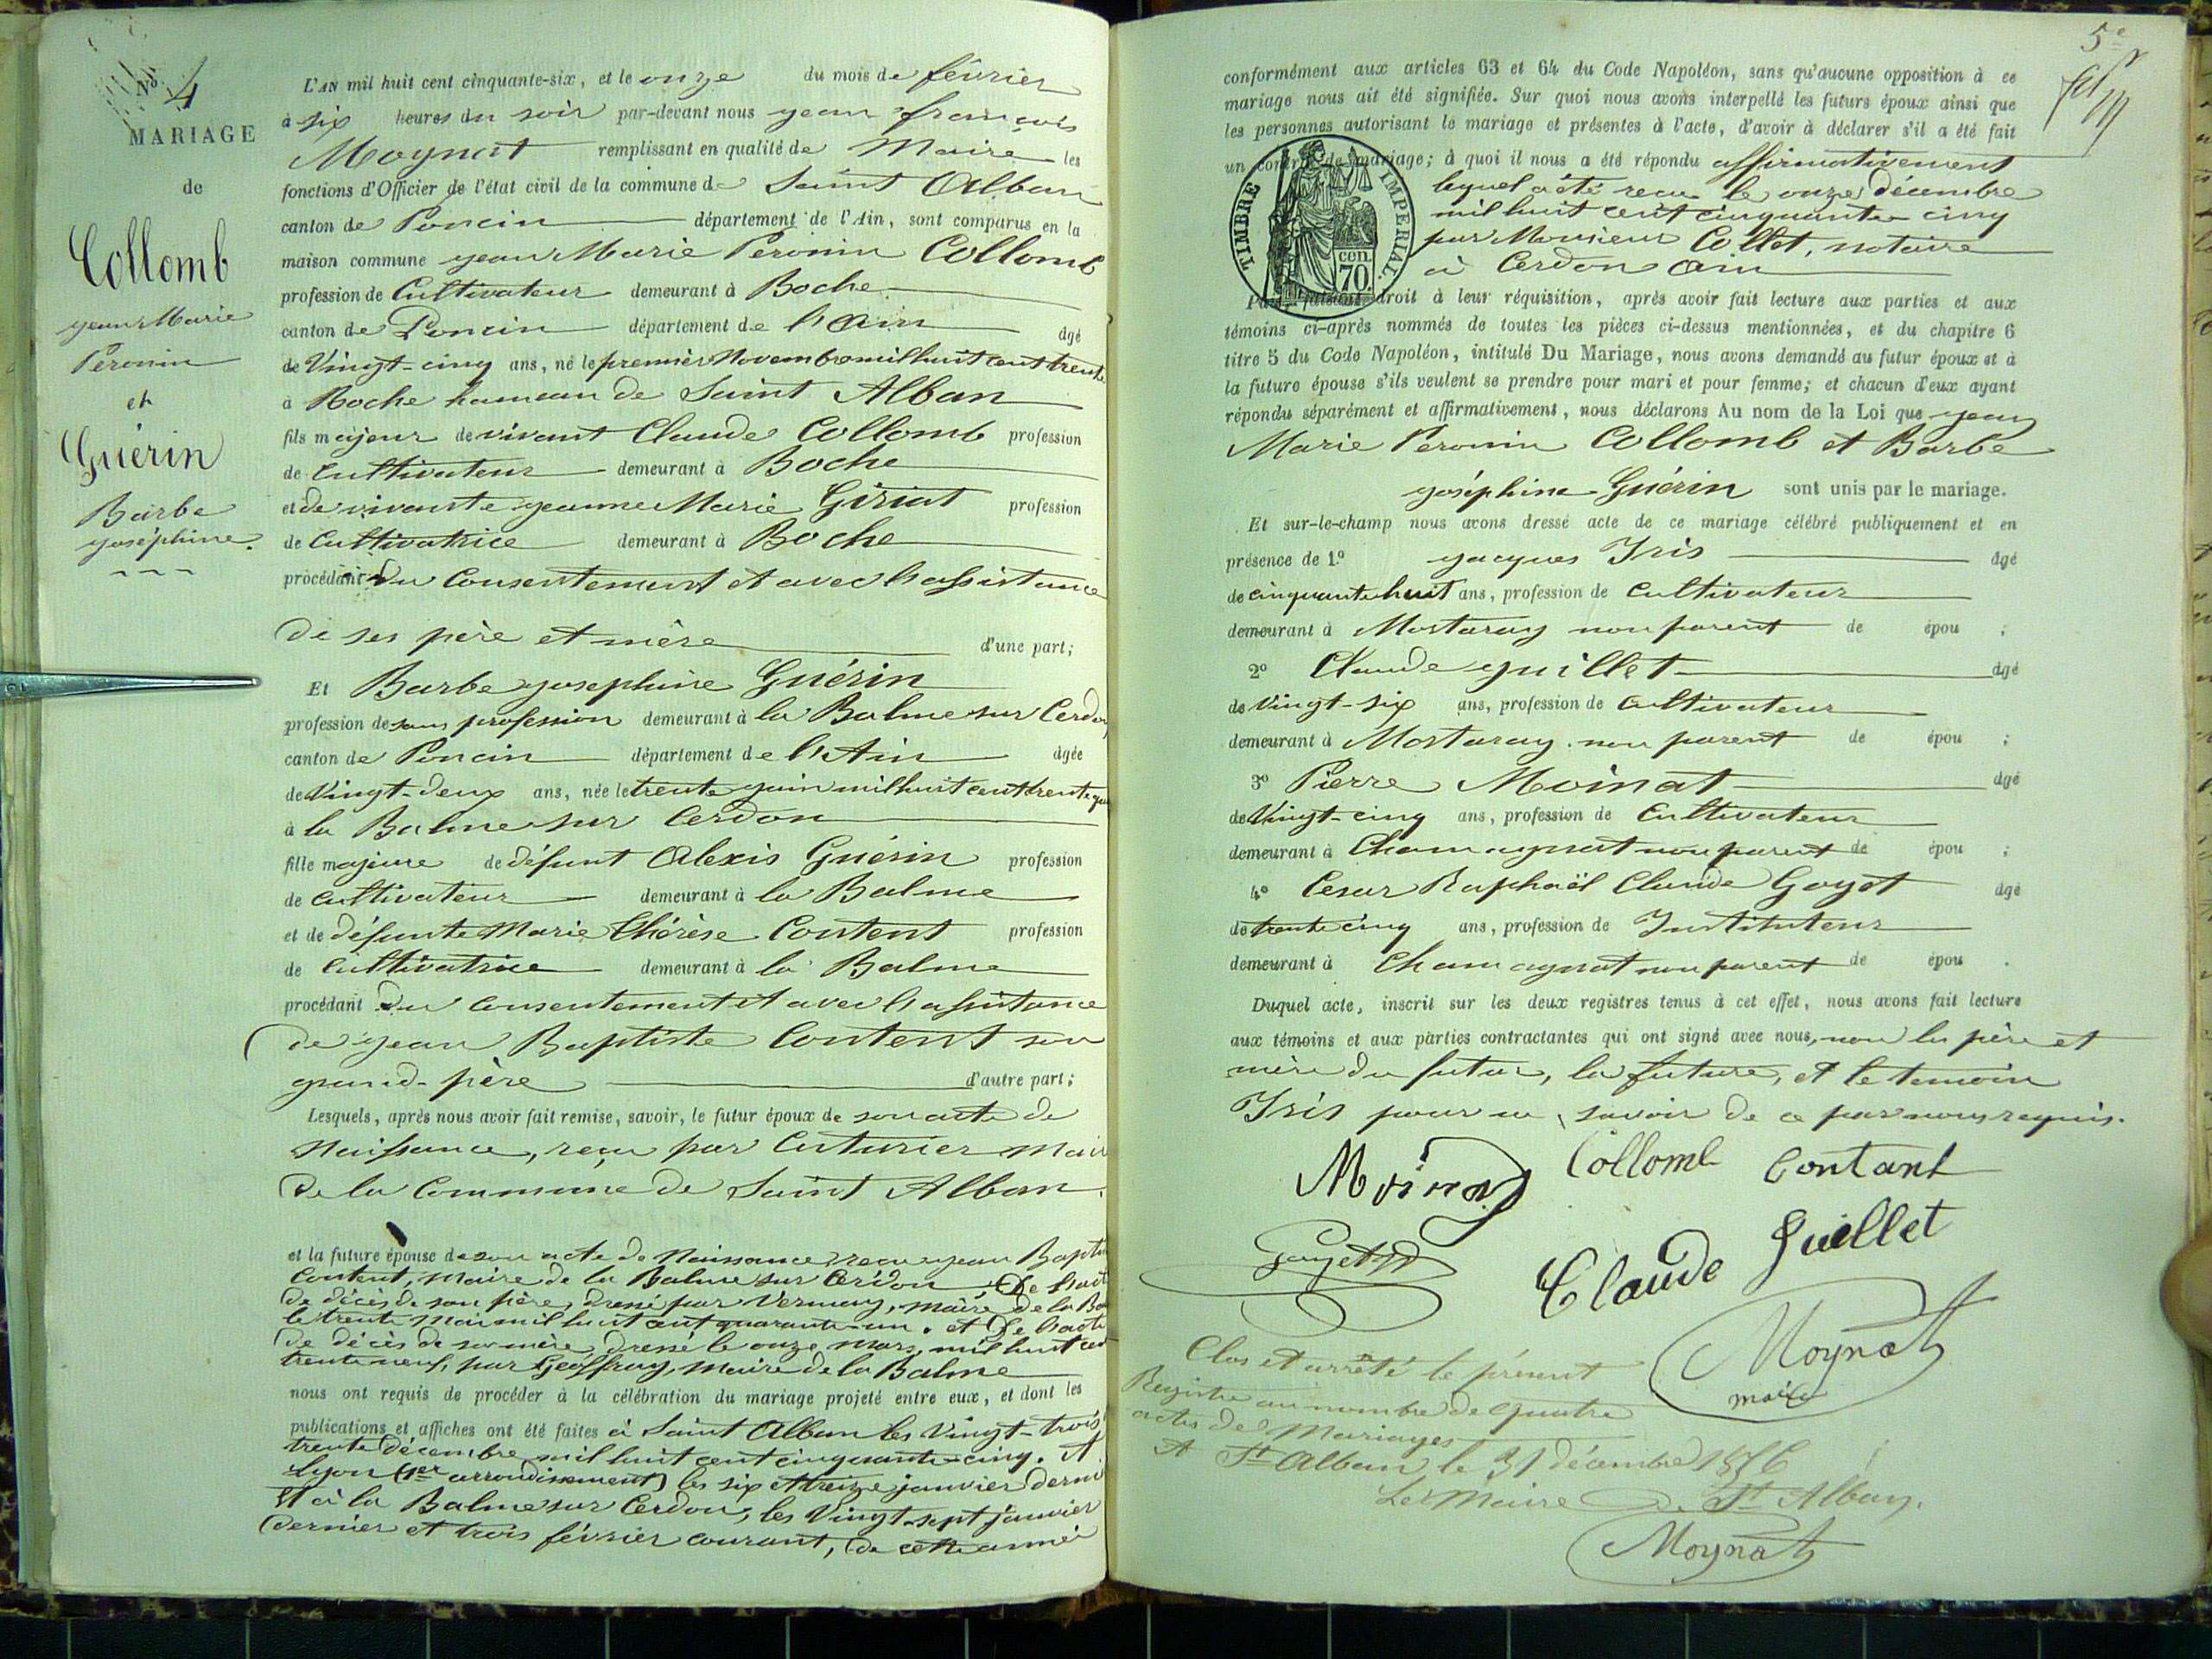 N° 4
MARIAGE
de
Collomb
jean Marie
Peronin
et
Guérin
Barbe
joséphine.
L'AN mil huit cent cinquante-six, et le onze du mois de février
à six heures du soir par-devant nous jean françois
Moynat remplissant en qualité de Maire les
fonctions d'Officier de l'état civil de la commune de Saint Alban
canton de Poncin département de l'Ain, sont comparus en la
maison commune jean Marie Peronin Collomb
profession de Cultivateur demeurant à Boche
canton de Poncin département de l'Ain âgé
de Vingt-cinq ans, né le premier Novembre mil huit cent trente
à Boche hameau de Saint Alban
fils majeur de vivant Claude Collomb profession
de Cultivateur demeurant à Boche
et de vivante jeanne Marie Giriat profession
de Cultivatrice demeurant à Boche
procédant du Consentement et avec l'assistance
de ses père et mère d'une part;
Et Barbe josephine Guérin
profession de sans profession demeurant à la Balme sur Cerdon
canton de Poncin département de l'Ain âgée
de Vingt-deux ans, née le trente juin mil huit cent trente
à la Balme sur Cerdon
fille majeure de défunt Alexis Guérin profession
de Cultivateur demeurant à la Balme
et de défunte Marie Thérèse Content profession
de Cultivatrice demeurant à la Balme
procédant du consentement et avec l'assistance
de jean Baptiste Content son
grand-père d'autre part;
Lesquels, après nous avoir fait remise, savoir, le futur époux de son acte de
Naissance, reçu par Cuturier Maire
de la Commune de Saint Alban.
et la future épouse de son acte de Naissance, reçu jean Baptis
Content, Maire de la Balme sur Cerdon, De l'acte
de décès de son père, dressé par Vermay, maire de la Ba
le trente Mai mil huit cent quarante-un. et De l'acte
de décès de sa mère, dressé le onze Mars, mil huit cent
trente neuf, par Geoffray, Maire de la Balme
nous ont requis de procéder à la célébration du mariage projeté entre eux, et dont les
publications et affiches ont été faites à Saint Alban les Vingt-trois
trente décembre mil huit cent cinquante-cinq. A
Lyon (1er arrondissement) les six et treize janvier derni
Et à la Balme sur Cerdon, les Vingt-sept janvier
dernier et trois février courant, de cette année
5e
conformément aux articles 63 et 64 du Code Napoléon, sans qu'aucune opposition à ce
mariage nous ait été signifiée. Sur quoi nous avons interpellé les futurs époux ainsi que
les personnes autorisant le mariage et présentes à l'acte, d'avoir à déclarer s'il a été fait
un contrat de mariage; à quoi il nous a été répondu affirmativement
lequel a été reçu le onze décembre
mil huit cent cinquante-cinq
par Monsieur Collet, notaire
à Cerdon Ain
TIMBRE IMPERIAL.
cen.
70.
Puis, faisant droit à leur réquisition, après avoir fait lecture aux parties et aux
témoins ci-après nommés de toutes les pièces ci-dessus mentionnées, et du chapitre 6
titre 5 du Code Napoléon, intitulé Du Mariage, nous avons demandé au futur époux et à
la future épouse s'ils veulent se prendre pour mari et pour femme; et chacun d'eux ayant
répondu séparément et affirmativement, nous déclarons Au nom de la Loi que jean
Marie Peronin Collomb et Barbe
joséphine Guérin sont unis par le mariage.
Et sur-le-champ nous avons dressé acte de ce mariage célébré publiquement et en
présence de 1.° jacques Iris âgé
de cinquante huit ans, profession de Cultivateur
demeurant à Mostaray non parent de épou ;
2° Claude guillet âgé
de Vingt-six ans, profession de Cultivateur
demeurant à Mostaray. non parent de épou ;
3° Pierre Moinat âgé
de Vingt-cinq ans, profession de Cultivateur
demeurant à Chamagnat non parent de épou ;
4° Cesar Raphaël Claude Goyet âgé
de trente cinq ans, profession de Instituteur
demeurant à Chamagnat non parent de épou .
Duquel acte, inscrit sur les deux registres tenus à cet effet, nous avons fait lecture
aux témoins et aux parties contractantes qui ont signé avec nous, non les père et
mère du futur, la future, et le temoin
Iris pour ne savoir de ce par nous requis.
Moinat Collomb Contant
Goyet
Claude Guillet
Moynat
maire
Clos et arrêté le présent
Registre au nombre de quatre
actes de Mariages
A St Alban le 31 décembre 1856
Le Maire de St Alban.
Moynat